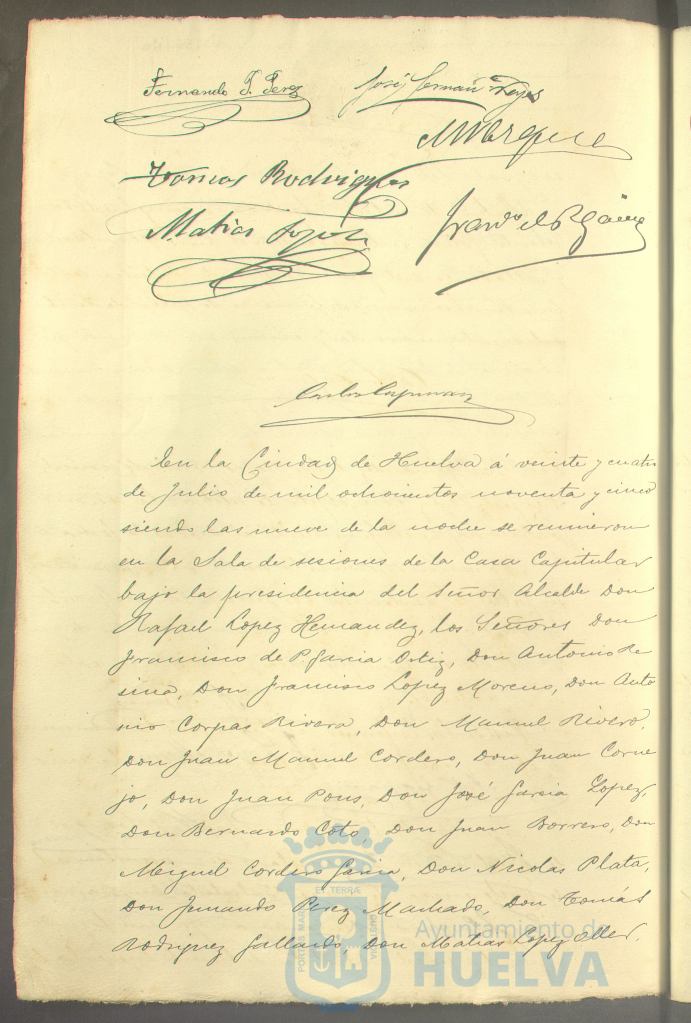 Fernando P. Perez
José Hernan
M Marquez
Tomas Rodriguez
Matias Lopez
En la Ciudad de Huelva á veinte y cuatro
de Julio de mil ochocientos noventa y cinco
siendo las nueve de la noche se reunieron
en la Sala de sesiones de la Casa Capitular
bajo la presidencia del Señor Alcalde Don
Rafael Lopez Hernandez, los Señores Don
Francisco de P. Garcia Ortiz, Don Antonio Re
sina, Don Francisco Lopez Moreno, Don Anto
nio Corpas Rivera, Don Manuel Rivero,
Don Juan Manuel Cordero, Don Juan Corne
jo, Don Juan Pons, Don José Garcia Lopez,
Don Bernardo Coto, Don Juan Borrero, Don
Miguel Cordero Garcia, Don Nicolas Plata,
Don Fernando Perez Machado, Don Tomás
Rodriguez Gallardo, Don Matias Lopez Oller,
PORTUS MARIS ET TERRÆ CUSTODIA
Ayuntamiento de
HUELVA